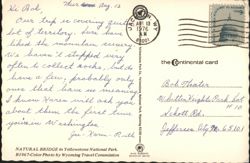 Thurs. Aug. 12
Hi Bob,
Our trip is covering quite a
lot of territory. Sure have
liked the mountain scenery
We haven't stopped very
often to collect rocks, but do
have a few, probably only
one that have no meaning
I know Karen will ask you
about them the first time
you're in Washington.
Joe Karen - Ruth
NATURAL BRIDGE in Yellowstone National Park.
B1067-Color Photo by Wyoming Travel Commission
WY
AUG 13
1976
the Continental card
Bob Thaler
Heights Park Lot
Schott Rd.
Jefferson City Mo 65101